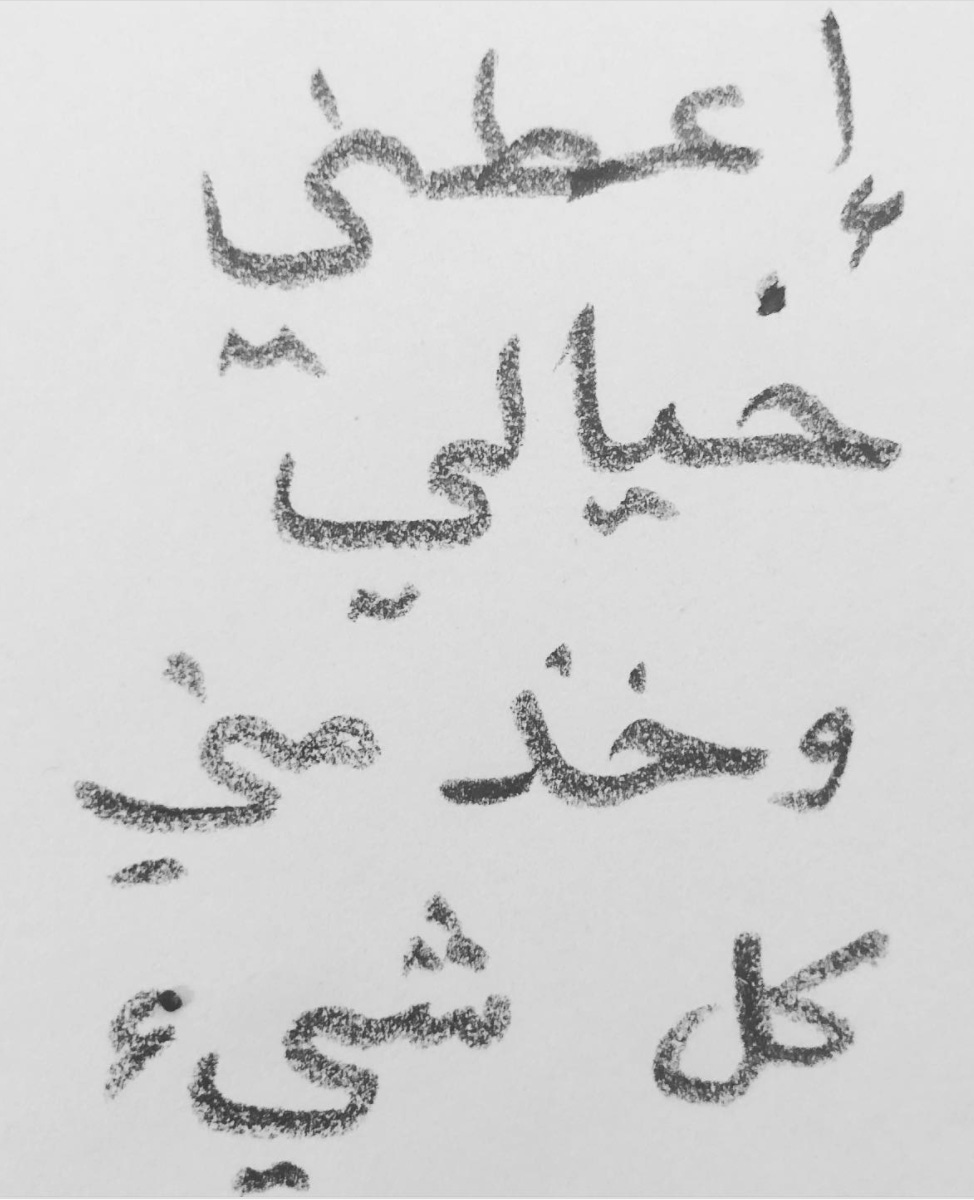 إعطني
خيالي
وخذ مني
كل شيء